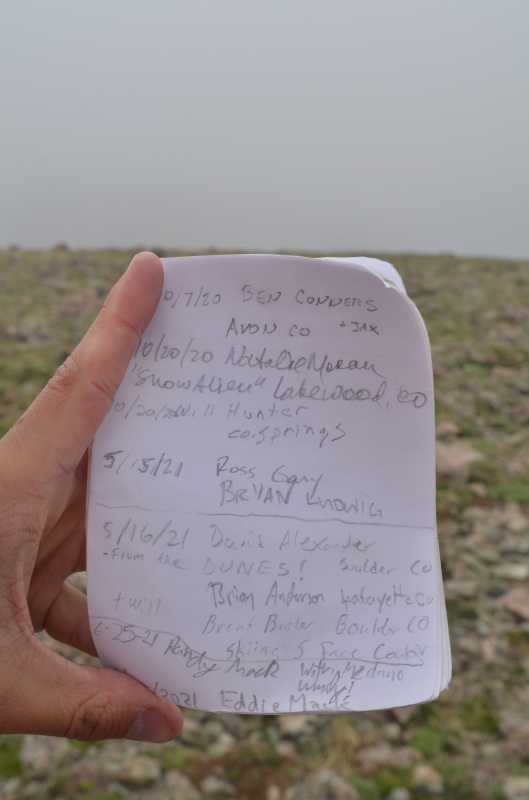 0/7/20 BEN CONNERS
AVON CO + JAX
10/20/20 Natalie Moran
"SnowAlien" Lakewood, CO
10/20/20 Will Hunter
co.springs
5/15/21 Ross Gary
BRYAN LUDWIG
5/16/21 David Alexander
-From the DUNES! Boulder CO
Brian Anderson Lafayette Co
+ will Brent Butler Boulder CO
Skiing S Face
6-25-21 Randy Mack with Medano
2021 Eddie Mack